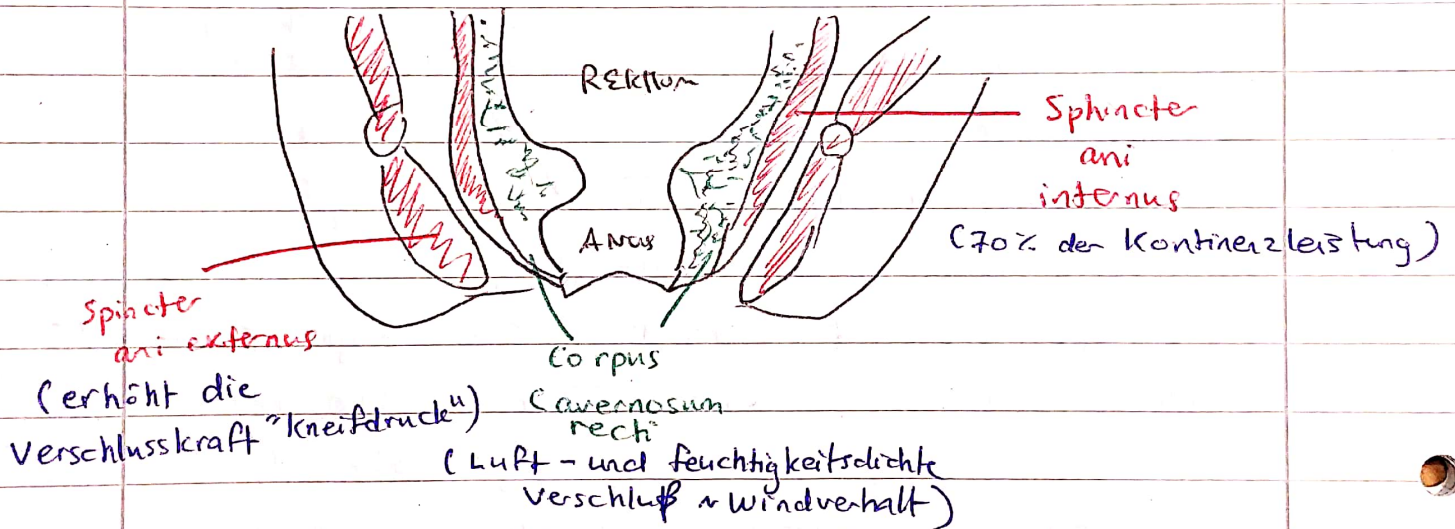 REKTUM
Sphincter
ani
internus
(70% der Kontinenzleistung)
ANUS
Spincter
ani externus
(erhöht die
Verschlusskraft "Kneifdruck")
Corpus
Cavernosum
recti
(Luft- und feuchtigkeitsdichte
Verschluß ~ Windverhalt)